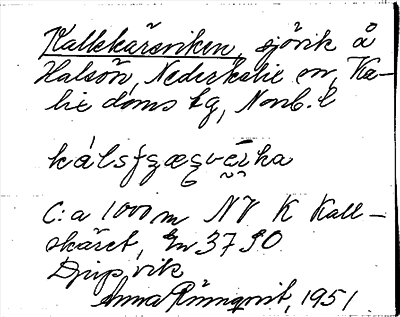 Kallskärsviken, sjövik å
Halsön, Nederkalix sn, Ka-
lix doms tg, Norrb. l
C:a 1000 m NV K Kall-
skäret, En 37 SO
Djup vik
Anna Rönnqvist, 1951